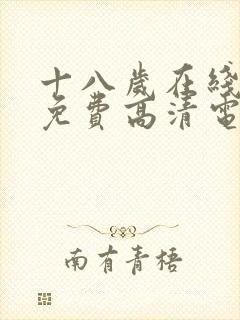 十八岁在线
免费高清电
南有青梧